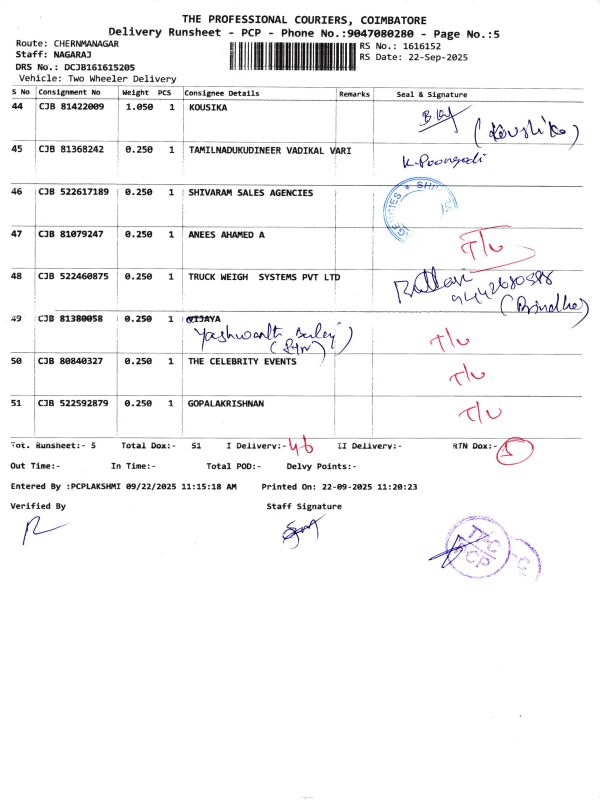 THE PROFESSIONAL COURIERS, COIMBATORE
Delivery Runsheet - PCP - Phone No.:9047080280 - Page No.:5
Route: CHERNMANAGAR
Staff: NAGARAJ
RS No.: 1616152
DRS No.: DCJB161615205
RS Date: 22-Sep-2025
Vehicle: Two Wheeler Delivery
S No Consignment No Weight PCS Consignee Details Remarks Seal & Signature
44 CJB 81422009 1.050 1 KOUSIKA
(Koushika)
45 CJB 81368242 0.250 1 TAMILNADUKUDINEER VADIKAL VARI
K. Poongodi
46 CJB 522617189 0.250 1 SHIVARAM SALES AGENCIES
47 CJB 81079247 0.250 1 ANEES AHAMED A
T/L
48 CJB 522460875 0.250 1 TRUCK WEIGH SYSTEMS PVT LTD
(Brindha)
49 CJB 81380058 0.250 1 VIJAYA
Yashwanth
T/L
50 CJB 80840327 0.250 1 THE CELEBRITY EVENTS
T/L
51 CJB 522592879 0.250 1 GOPALAKRISHNAN
T/L
Tot. Runsheet:- 5 Total Dox:- 51 I Delivery:- 46 II Delivery:- RTN Dox:- 5
Out Time:- In Time:- Total POD:- Delvy Points:-
Entered By :PCPLAKSHMI 09/22/2025 11:15:18 AM Printed On: 22-09-2025 11:20:23
Verified By Staff Signature